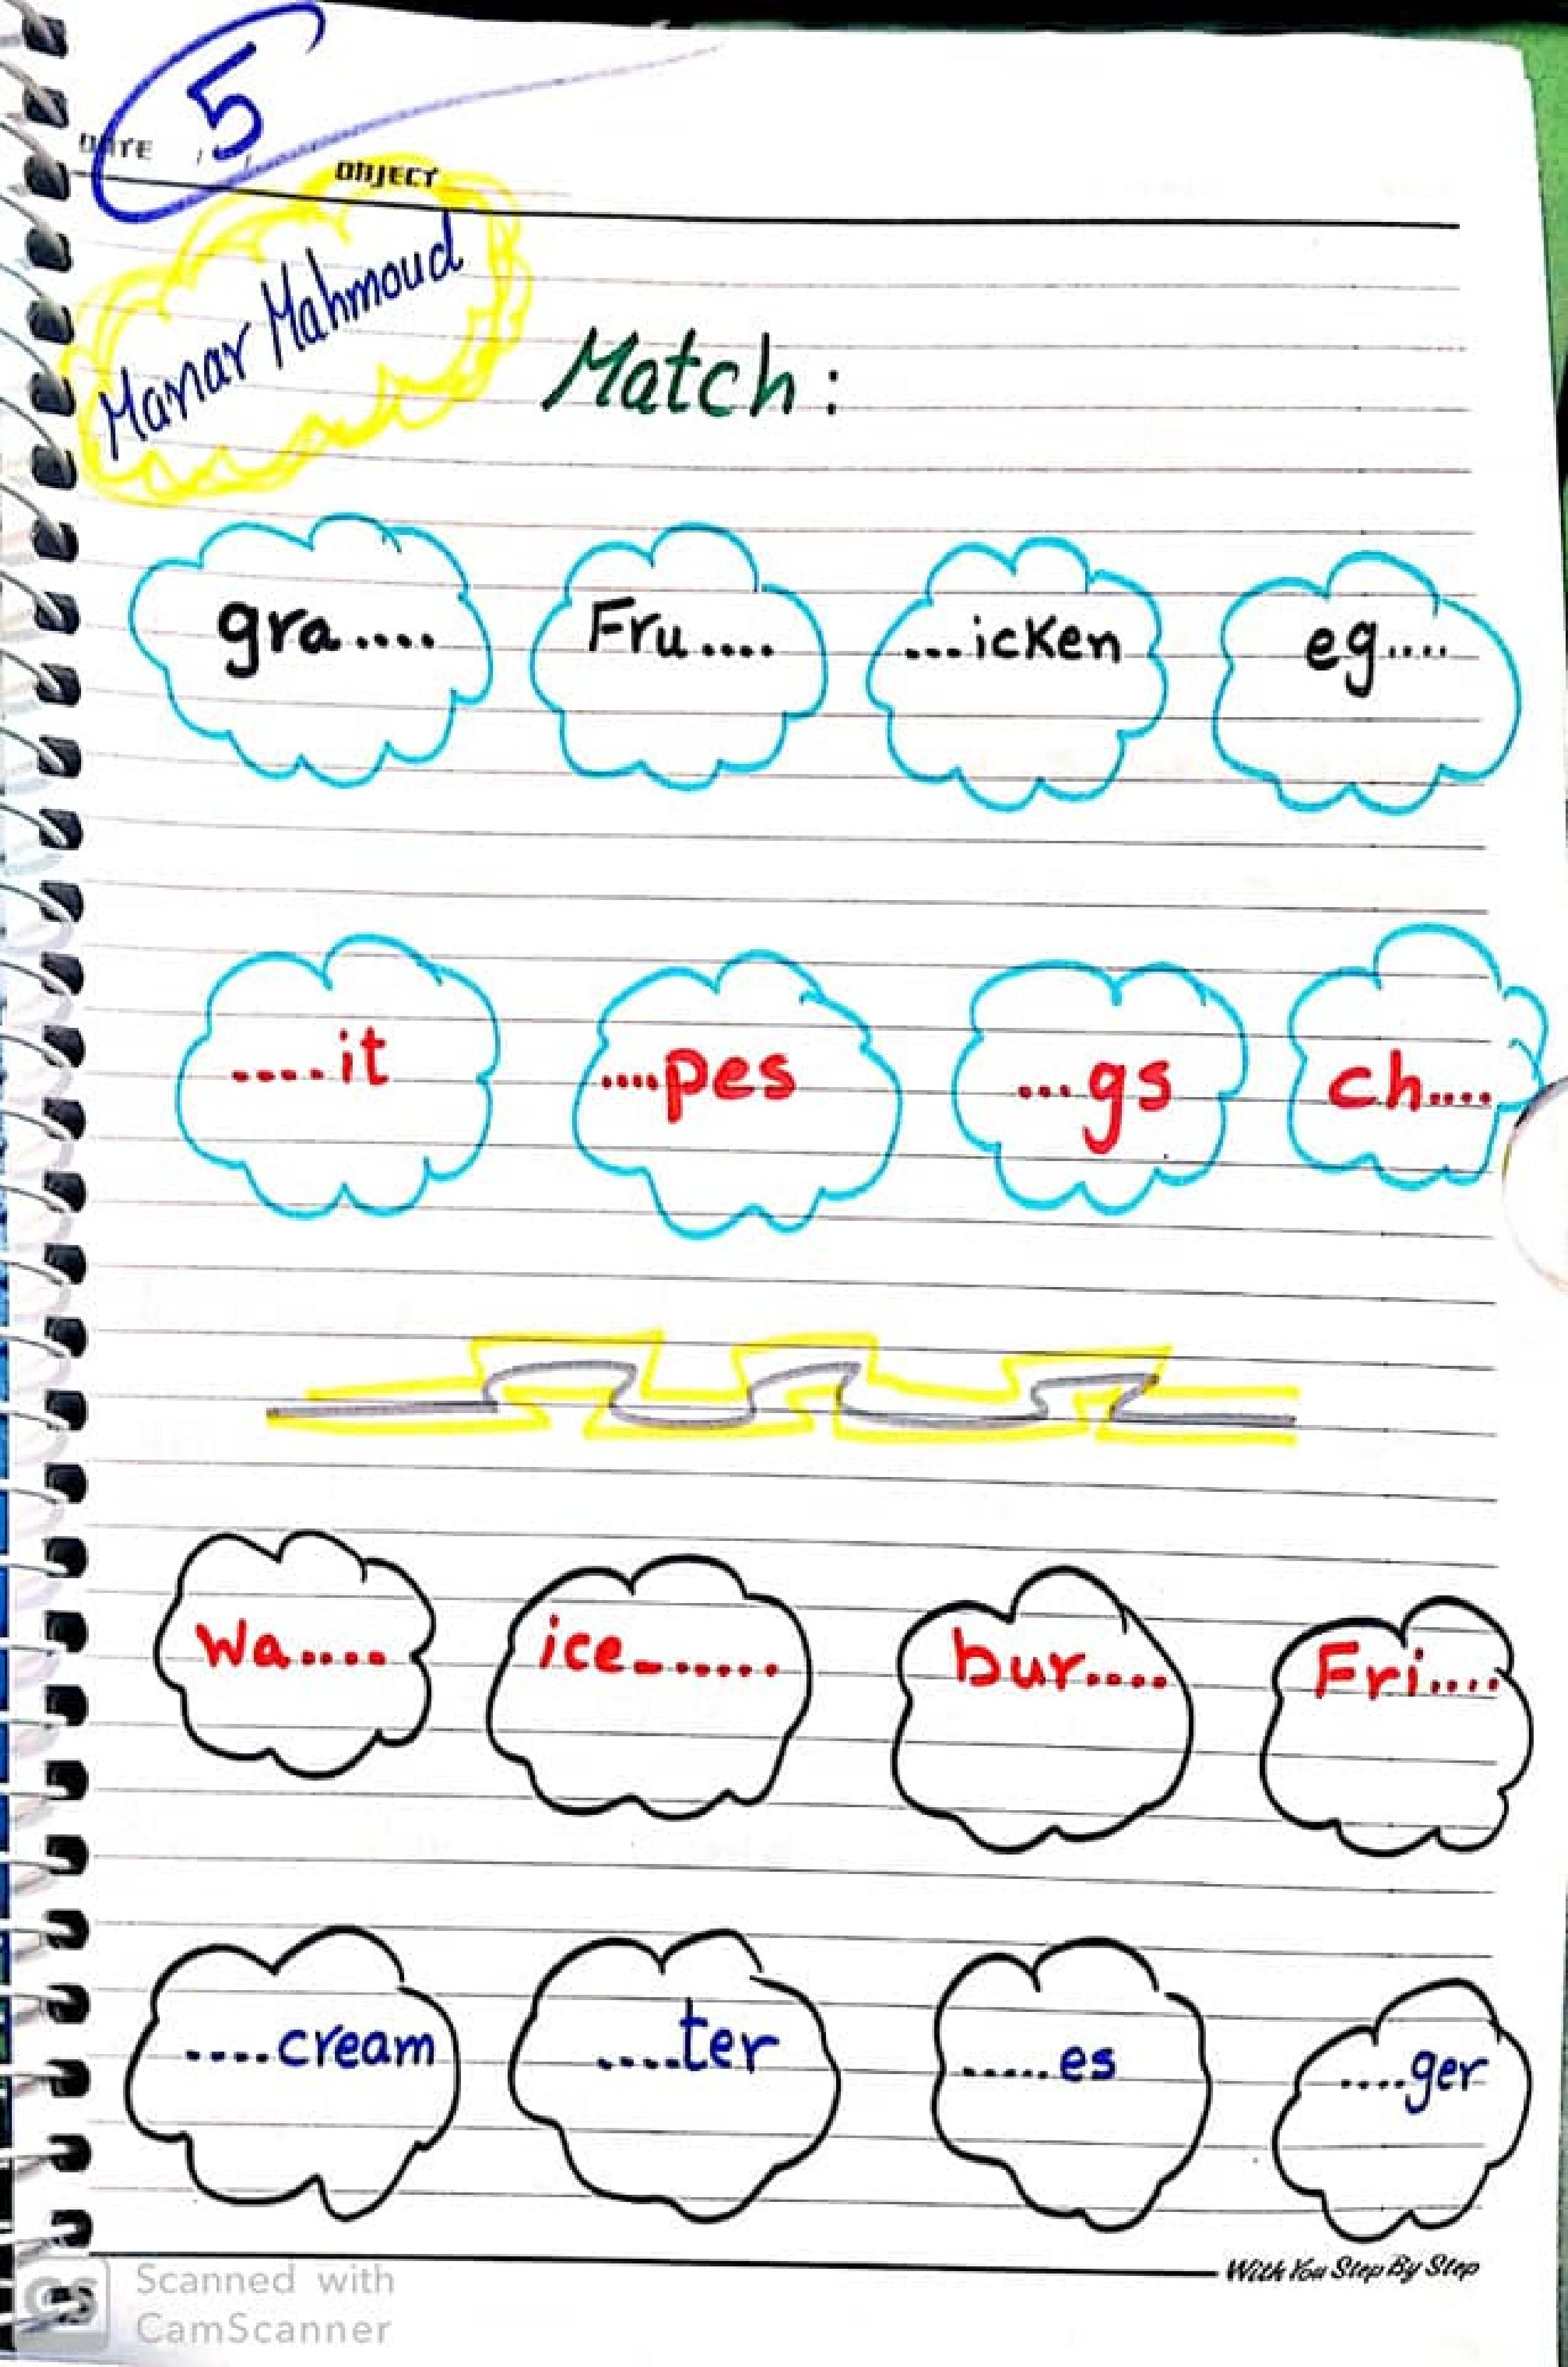 5
DATE / /
OBJECT
Manar Mahmoud
Match:
gra.... Fru.... ...icken eg....
.....it ....pes ...gs ch....
Wa..... ice....... bur.... Fri....
....cream ....ter ......es ....ger
With You Step By Step
CS Scanned with
CamScanner